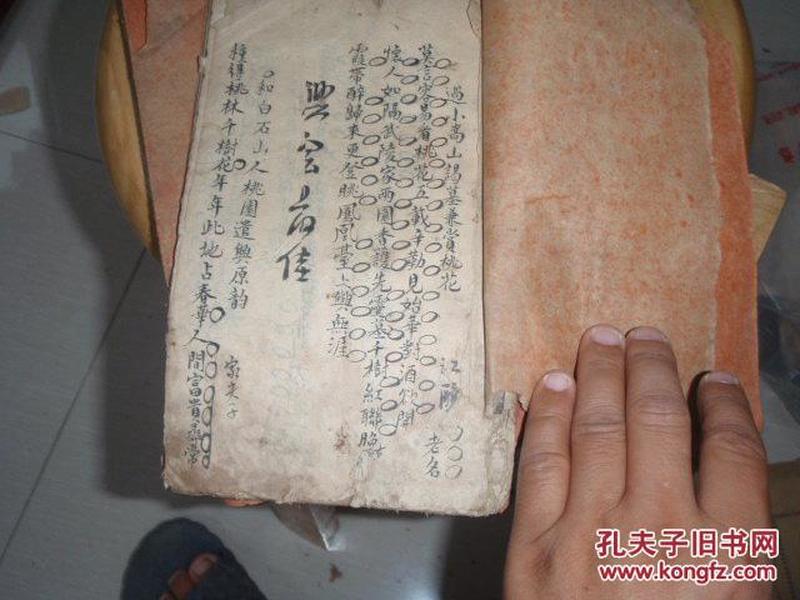 過小嵩山謁墓兼賞桃花
莫言容易看桃花五載辛勤見始華對酒
懷人如隔武陵家兩園香護先靈墓千樹紅聯
霞帶醉歸來更登眺鳳凰臺上興無涯
老名
興言高佳
和白石山人桃園遣興原韵
種得桃林千樹花年年此地占春華人間富貴尋常
孔夫子旧书网
www.kongfz.com